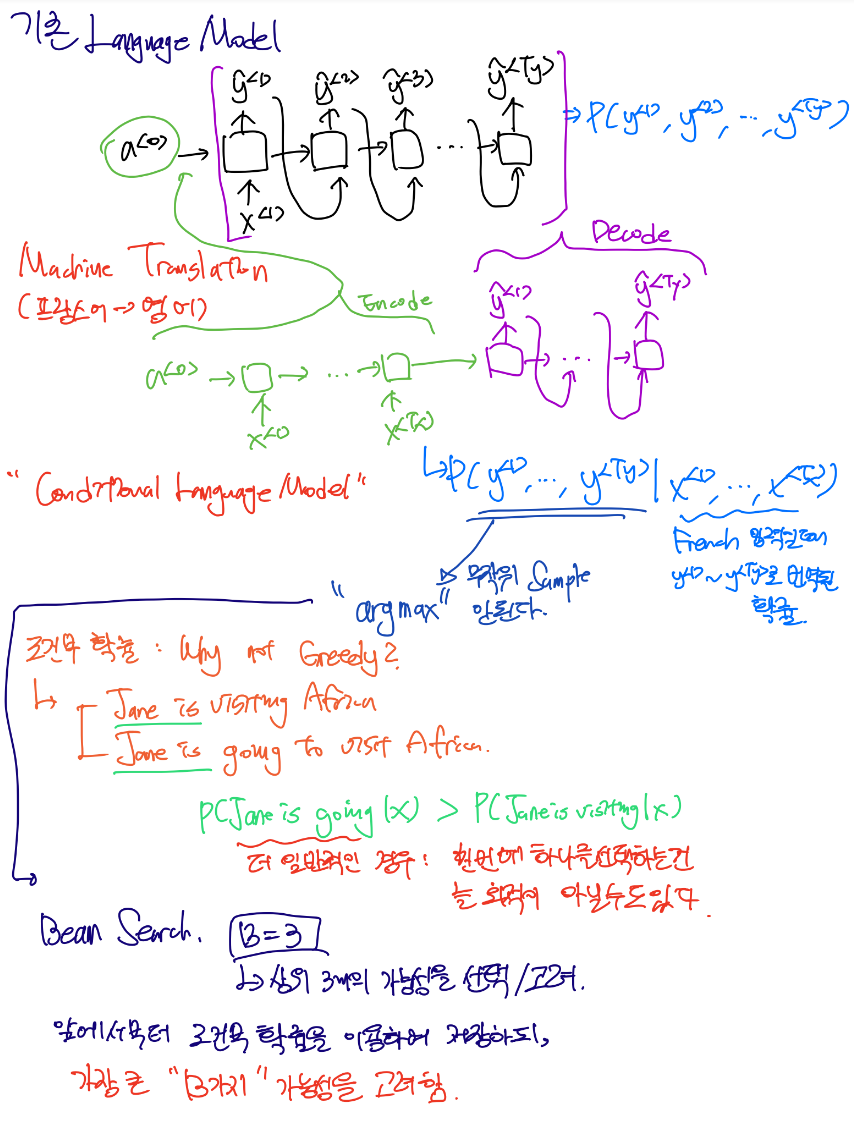 기존 Language Model
ŷ<1> ŷ<2> ŷ<3> ŷ<Ty>
⇒ P(y<1>, y<2>, ..., y<Ty>)
a<0> → → → ... →
x<1>
Decode
Machine Translation
(프랑스어 → 영어)
Encode
ŷ<1> ŷ<Ty>
a<0> → → ... → → ... →
x<1> x<Tx>
"Conditional Language Model"
↳ P(y<1>, ..., y<Ty> | x<1>, ..., x<Tx>)
French 입력일때
y<1> ~ y<Ty>로 번역된
확률.
▷ 무작위 Sample
안된다.
"argmax"
조건부 확률 : Why not Greedy?
↳ Jane is visiting Africa
Jane is going to visit Africa.
P(Jane is going|x) > P(Jane is visiting|x)
더 일반적인 경우 : 한번에 하나를 선택하는건
늘 최적이 아닐수도있다.
Beam Search. B=3
↳ 상위 3개의 가능성을 선택/고려.
앞에서부터 조건부 확률을 이용하여 저장하되,
가장 큰 "B가지" 가능성을 고려함.